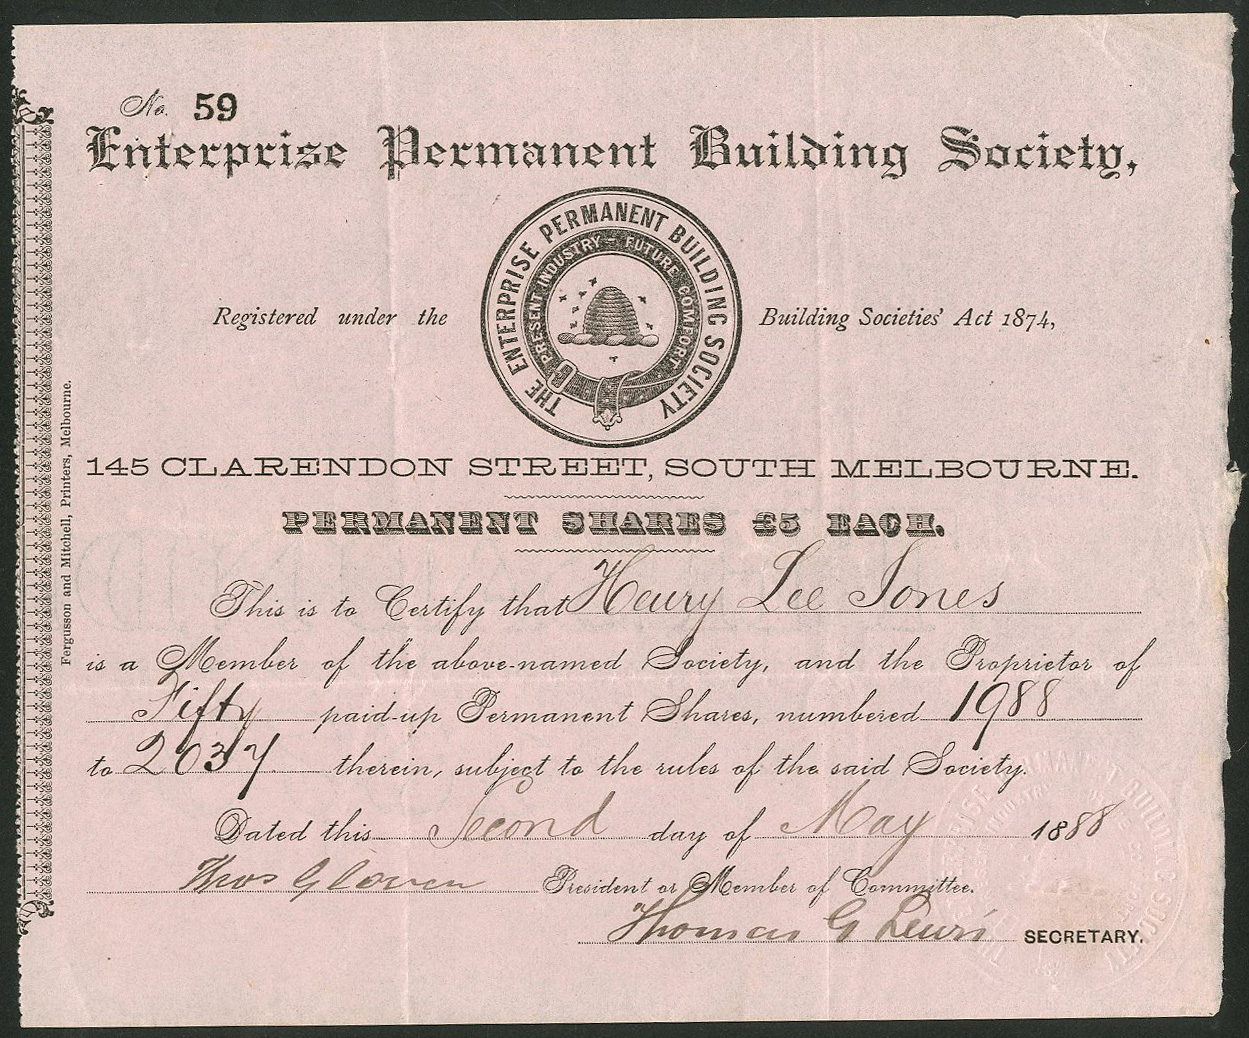 No. 59
Enterprise Permanent Building Society,
THE ENTERPRISE PERMANENT BUILDING SOCIETY
PRESENT INDUSTRY – FUTURE COMFORT
Registered under the Building Societies' Act 1874,
145 CLARENDON STREET, SOUTH MELBOURNE.
PERMANENT SHARES £5 EACH.
This is to Certify that Henry Lee Jones
is a Member of the above-named Society, and the Proprietor of
Fifty paid-up Permanent Shares, numbered 1988
to 2037 therein, subject to the rules of the said Society.
Dated this Second day of May 1888
Thos Glover President or Member of Committee.
Thomas G Lewis SECRETARY.
Fergusson and Mitchell, Printers, Melbourne.